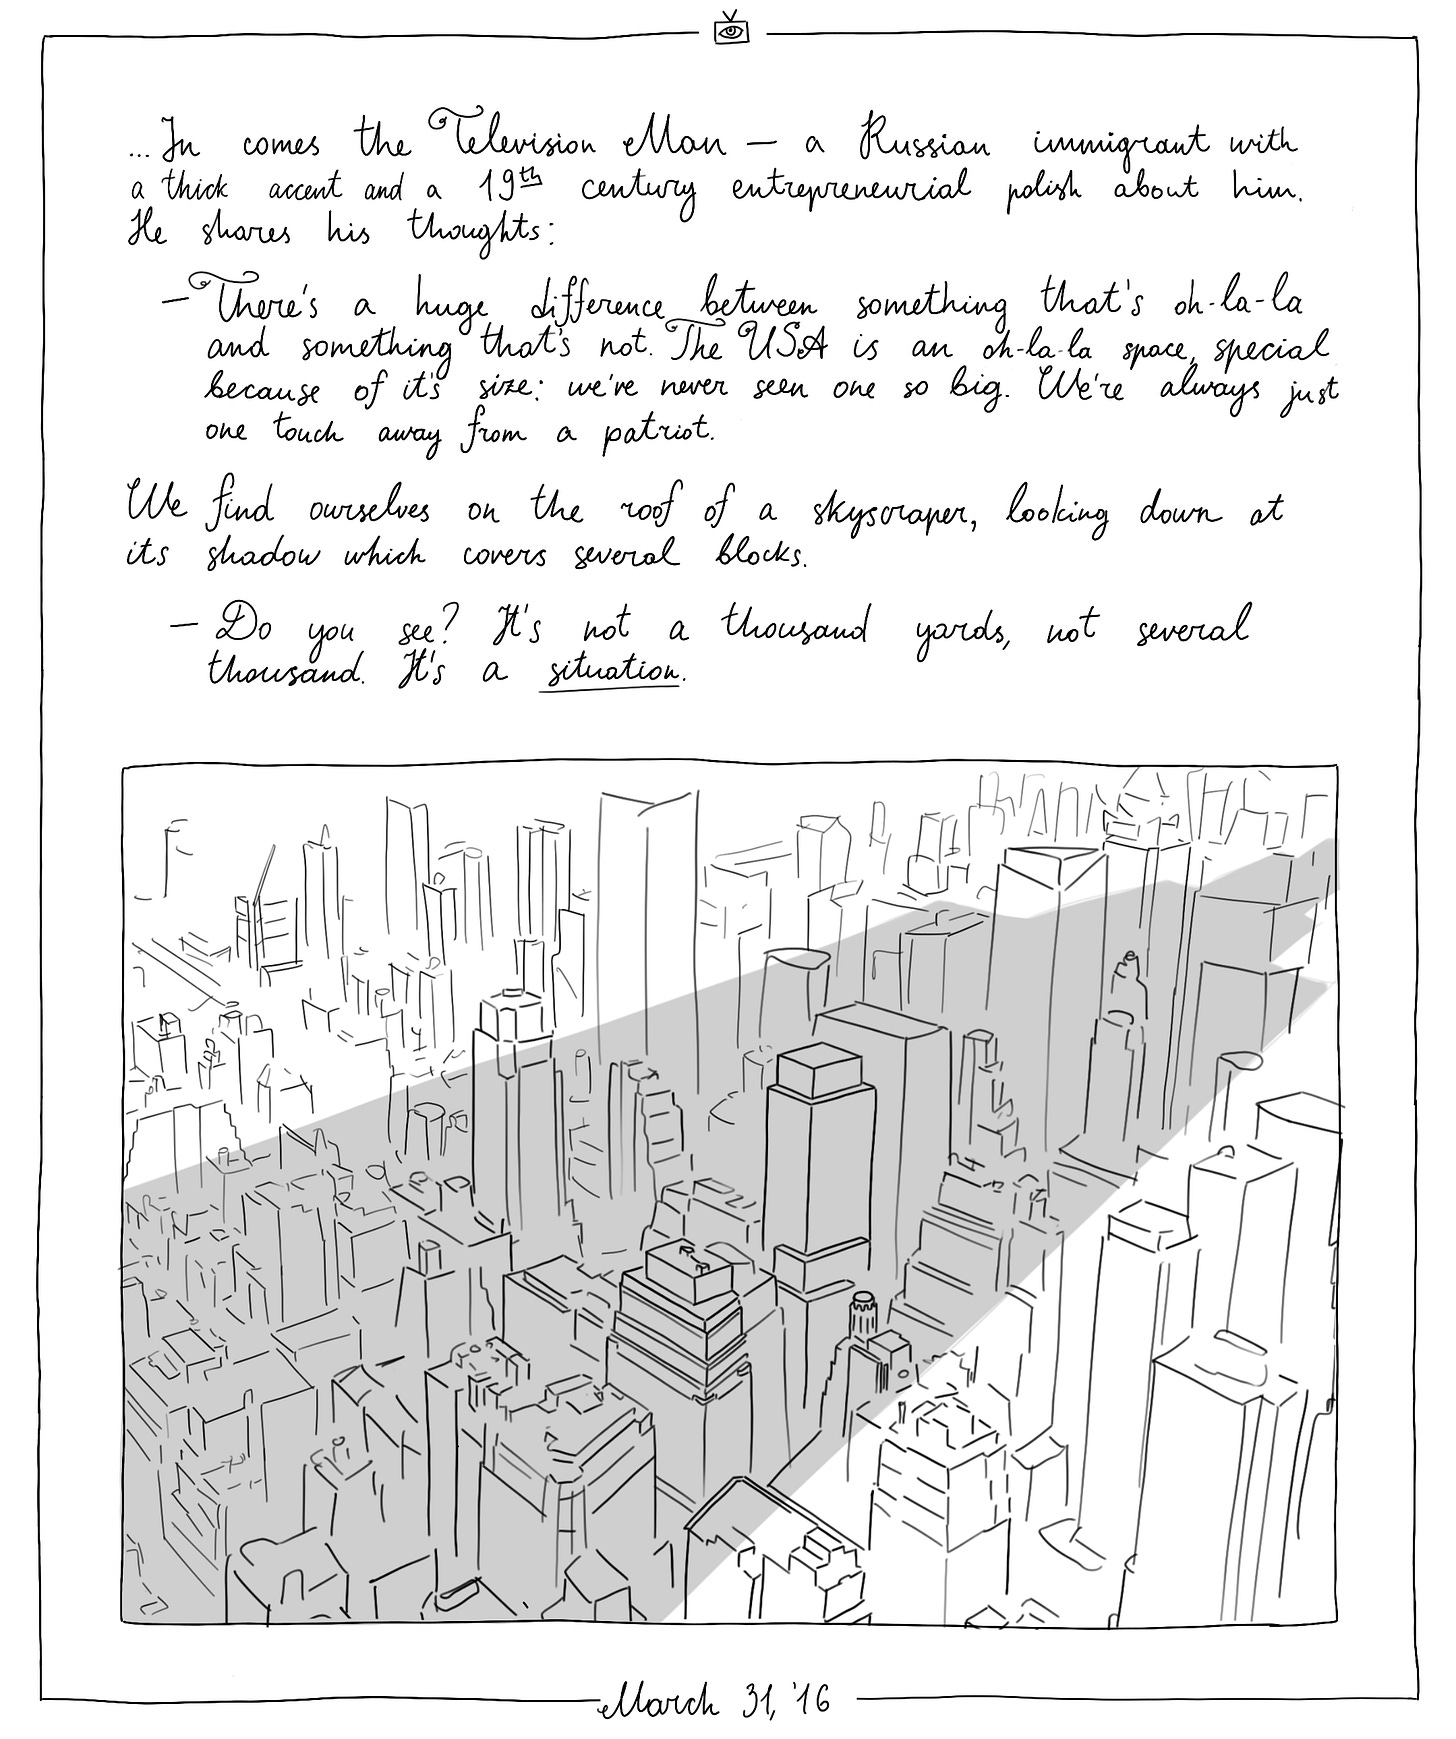 ...In comes the Television Man — a Russian immigrant with
a thick accent and a 19th century entrepreneurial polish about him.
He shares his thoughts:
— There's a huge difference between something that's oh-la-la
and something that's not. The USA is an oh-la-la space, special
because of it's size: we've never seen one so big. We're always just
one touch away from a patriot.
We find ourselves on the roof of a skyscraper, looking down at
its shadow which covers several blocks.
— Do you see? It's not a thousand yards, not several
thousand. It's a situation.
March 31, '16